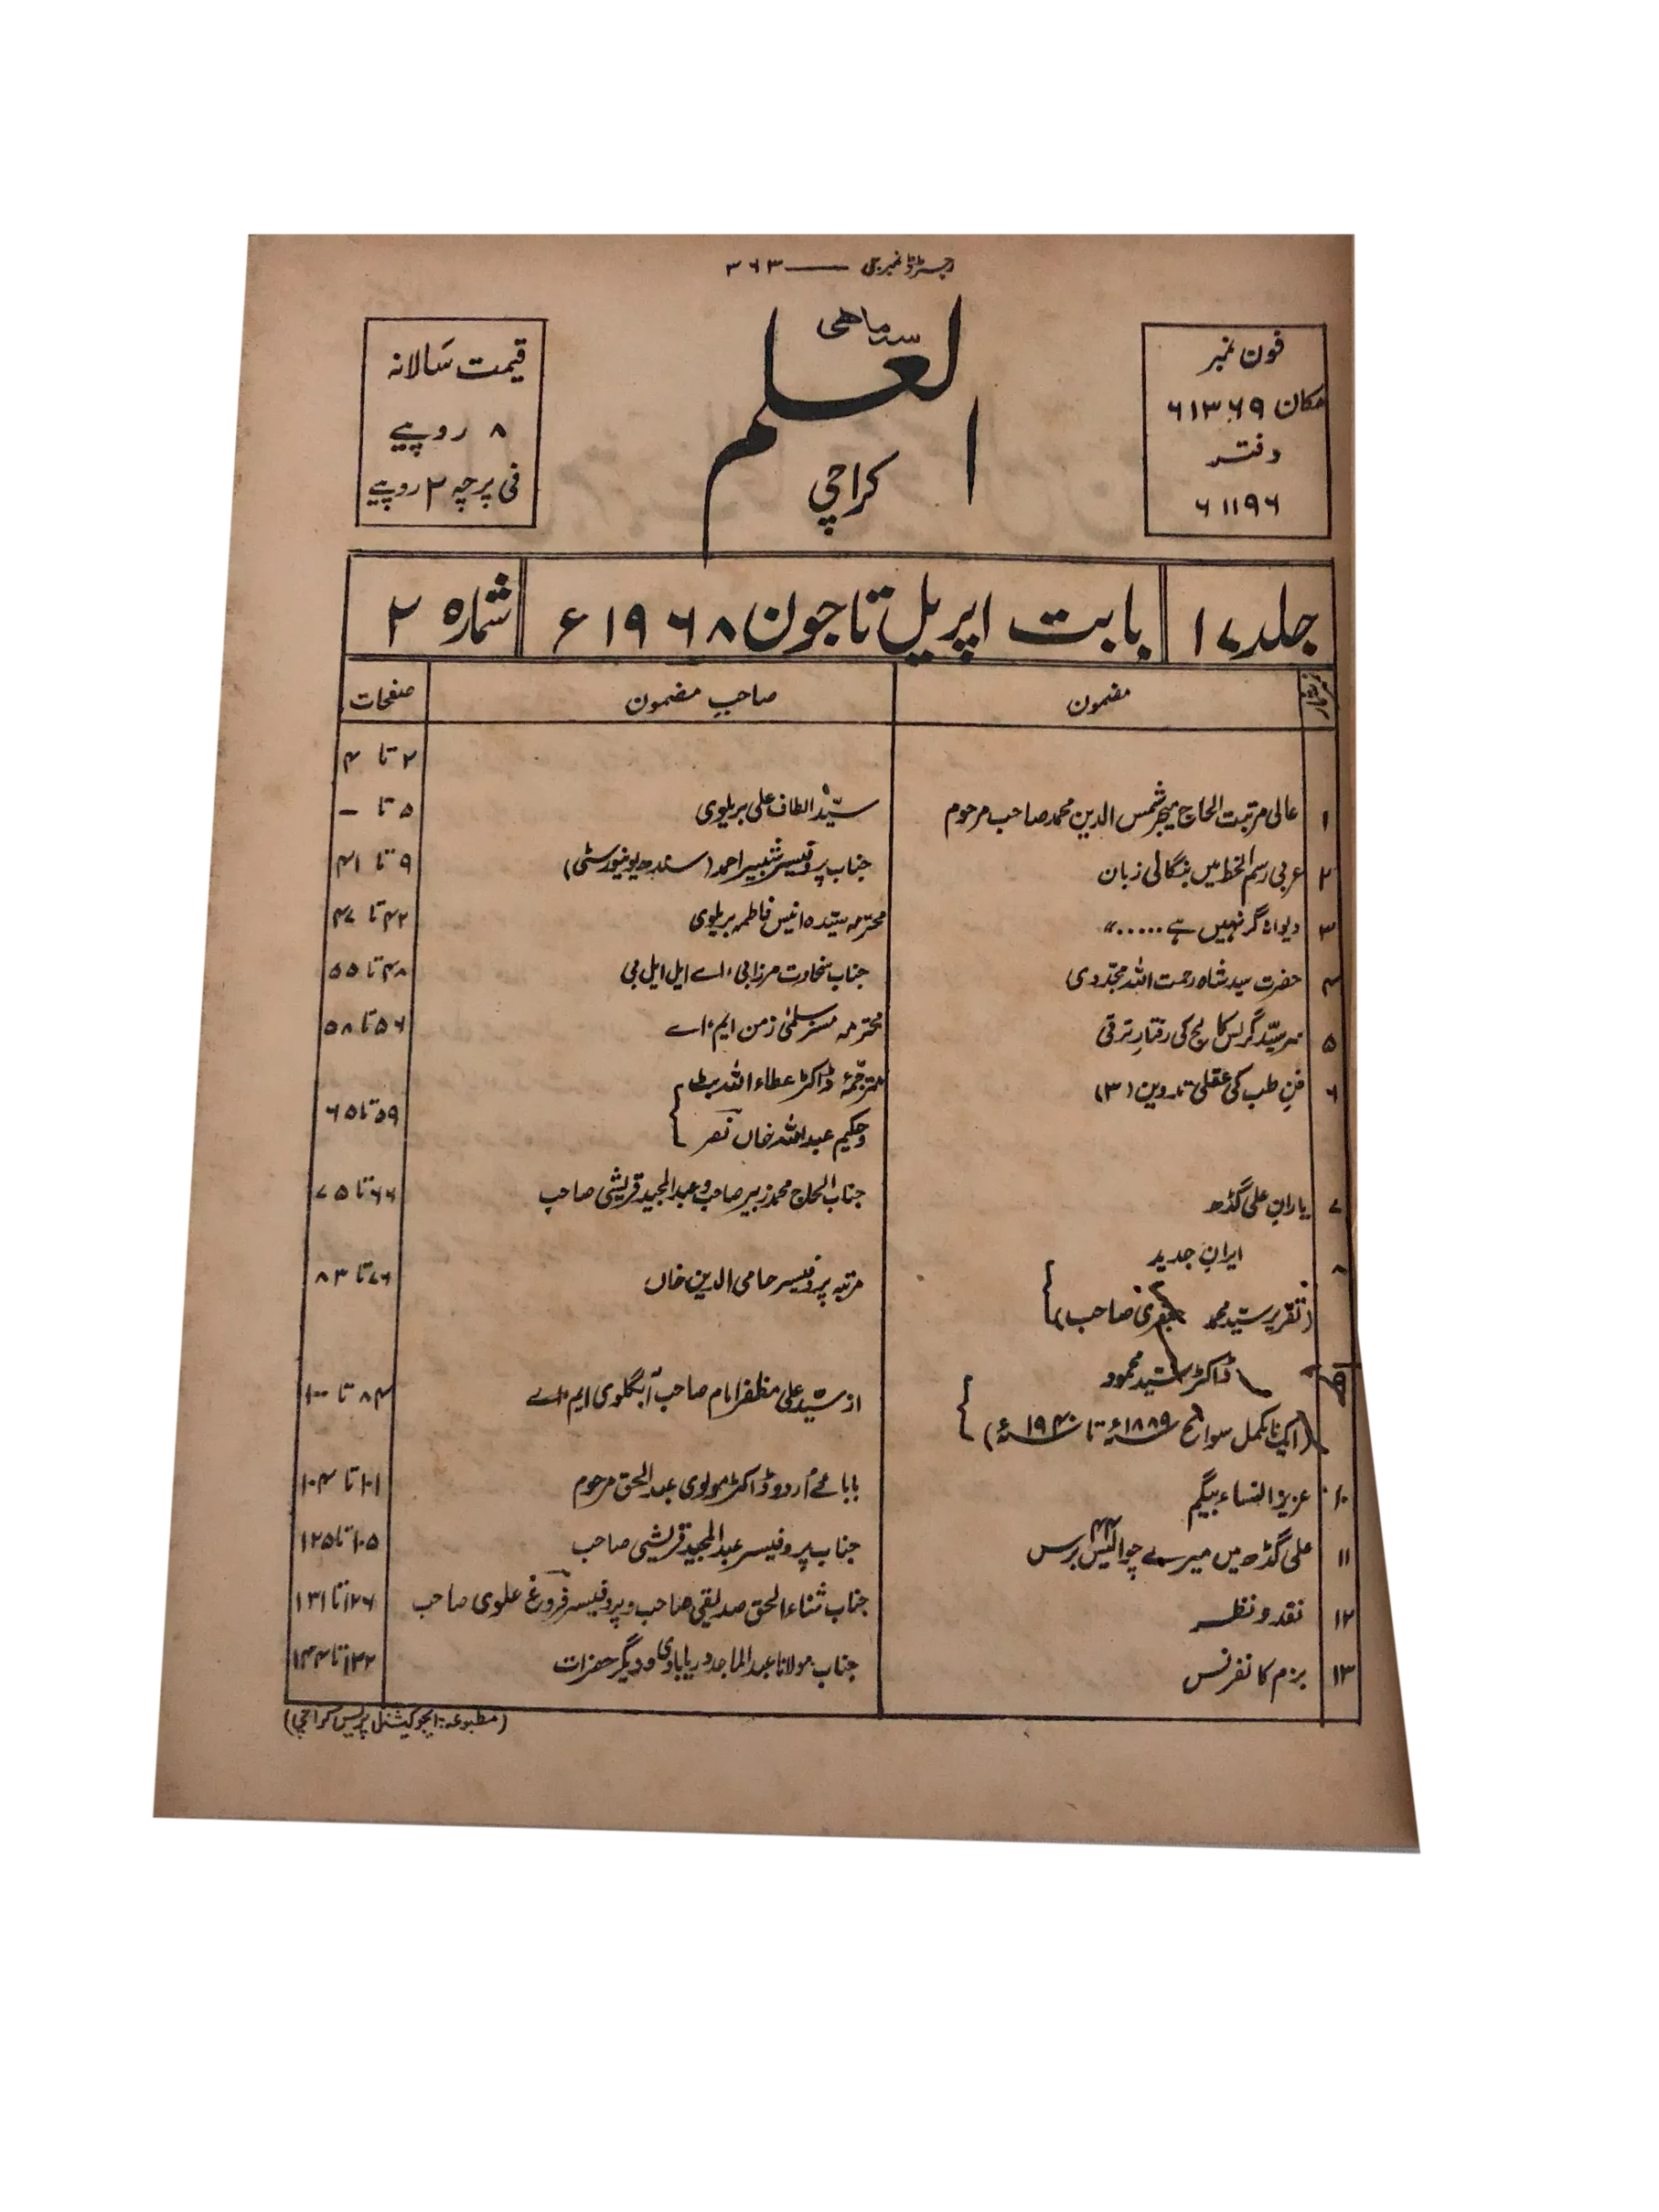 رجسٹرڈ نمبر جی —— ۳۶۳
سہ ماہی
العلم
کراچی
فون نمبر
مکان ۶۱۳۶۹
دفتر
۶۱۱۹۶
قیمت سالانہ
۸ روپیے
فی پرچہ ۲ روپیے
جلد ۱۷ بابت اپریل تا جون ۱۹۶۸ء شمارہ ۲
مضمون صاحبِ مضمون صفحات
۲ تا ۴
۱ عالی مرتبت الحاج میجر شمس الدین محمد صاحب مرحوم سیّد الطاف علی بریلوی ۵ تا —
۲ عربی رسم الخط میں بنگالی زبان جناب پروفیسر شبیر احمد (سندھ یونیورسٹی) ۹ تا ۴۱
۳ دیوانہ گر نہیں ہے ....." محترمہ سیّدہ انیس فاطمہ بریلوی ۴۲ تا ۴۷
۴ حضرت سید شاہ رحمت اللہ مجدّدی جناب سخاوت مرزا بی، اے ایل ایل بی ۴۸ تا ۵۵
۵ سرسیّد گرلس کالج کی رفتارِ ترقی محترمہ مسز سلمیٰ زمن ایم، اے ۵۶ تا ۵۸
۶ فنِ طب کی عقلی تدوین (۳) مترجمۂ ڈاکٹر عطاء اللہ بٹ
وحکیم عبداللہ خاں نصر ۵۹ تا ۶۵
۷ یارانِ علی گڈھ جناب الحاج محمد زبیر صاحب و عبدالمجید قریشی صاحب ۶۶ تا ۷۵
۸ ایرانِ جدید
(تقریر سیّد محمد جعفری صاحب) مرتبہ پروفیسر حامی الدین خاں ۷۶ تا ۸۳
۹ ڈاکٹر سید محمود
(ایک نامکمل سوانح ۱۸۸۹ء تا ۱۹۴۰ء) از سیّد علی مظفر امام صاحب آبگلوی ایم، اے ۸۴ تا ۱۰۰
۱۰ عزیز النساء بیگم بابائے اُردو ڈاکٹر مولوی عبدالحق مرحوم ۱۰۱ تا ۱۰۴
۱۱ علی گڈھ میں میرے چوالیس ۴۴ برس جناب پروفیسر عبدالمجید قریشی صاحب ۱۰۵ تا ۱۲۵
۱۲ نقد و نظر جناب ثناء الحق صدیقی صاحب و پروفیسر فروغ علوی صاحب ۱۲۶ تا ۱۳۱
۱۳ بزم کانفرنس جناب مولانا عبدالماجد دریابادی و دیگر حضرات ۱۳۲ تا ۱۴۴
(مطبوعہ: ایجوکیشنل پریس کراچی)